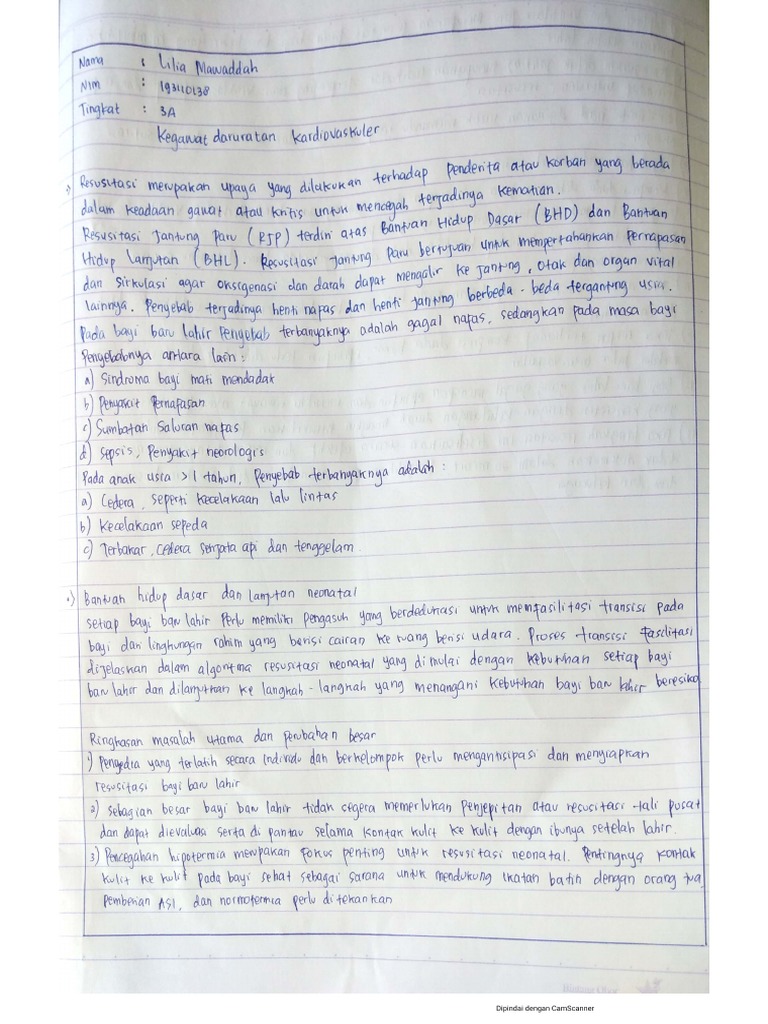 Nama : Lilia Mawaddah
NIM : 193110138
Tingkat : 3A
Kegawat daruratan Kardiovaskuler
•) Resusitasi merupakan upaya yang dilakukan terhadap penderita atau korban yang berada
dalam keadaan gawat atau kritis untuk mencegah terjadinya kematian.
Resusitasi Jantung Paru (RJP) terdiri atas Bantuan Hidup Dasar (BHD) dan Bantuan
Hidup Lanjutan (BHL). Resusitasi Jantung Paru bertujuan untuk mempertahankan Pernapasan
dan sirkulasi agar oksigenasi dan darah dapat mengalir ke jantung, otak dan organ vital
lainnya. Penyebab terjadinya henti nafas dan henti jantung berbeda-beda tergantung usia.
Pada bayi baru lahir Penyebab terbanyaknya adalah gagal nafas, sedangkan pada masa bayi
Penyebabnya antara lain :
a) Sindroma bayi mati mendadak
b) Penyakit Pernafasan
c) Sumbatan Saluran nafas
d) Sepsis, Penyakit neorologis
Pada anak usia >1 tahun, Penyebab terbanyaknya adalah :
a) Cedera, seperti kecelakaan lalu lintas
b) Kecelakaan sepeda
c) Terbakar, cedera senjata api dan tenggelam.
•) Bantuan hidup dasar dan lanjutan neonatal
setiap bayi baru lahir Perlu memiliki pengasuh yang berdedikasi untuk memfasilitasi transisi pada
bayi dari linghungan rahim yang berisi cairan ke ruang berisi udara. Proses transisi Fasilitasi
dijelaskan dalam algoritma resusitasi neonatal yang di mulai dengan kebutuhan setiap bayi
baru lahir dan dilanjutkan ke langkah-langkah yang menangani kebutuhan bayi baru lahir beresiko
Ringkasan masalah utama dan perubahan besar
1) Penyedia yang terlatih secara individu dan berkelompok perlu mengantisipasi dan menyiapkan
resusitasi bayi baru lahir
2) Sebagian besar bayi baru lahir tidak segera memerlukan penjepitan atau resusitasi tali pusat
dan dapat dievaluasi serta di pantau selama kontak kulit ke kulit dengan ibunya setelah lahir.
3) Pencegahan hipotermia merupakan fokus penting untuk resusitasi neonatal. Pentingnya kontak
kulit ke kulit pada bayi sehat sebagai sarana untuk mendukung ikatan batin dengan orang tua,
pemberian ASI, dan normotermia perlu ditekankan
Dipindai dengan CamScanner